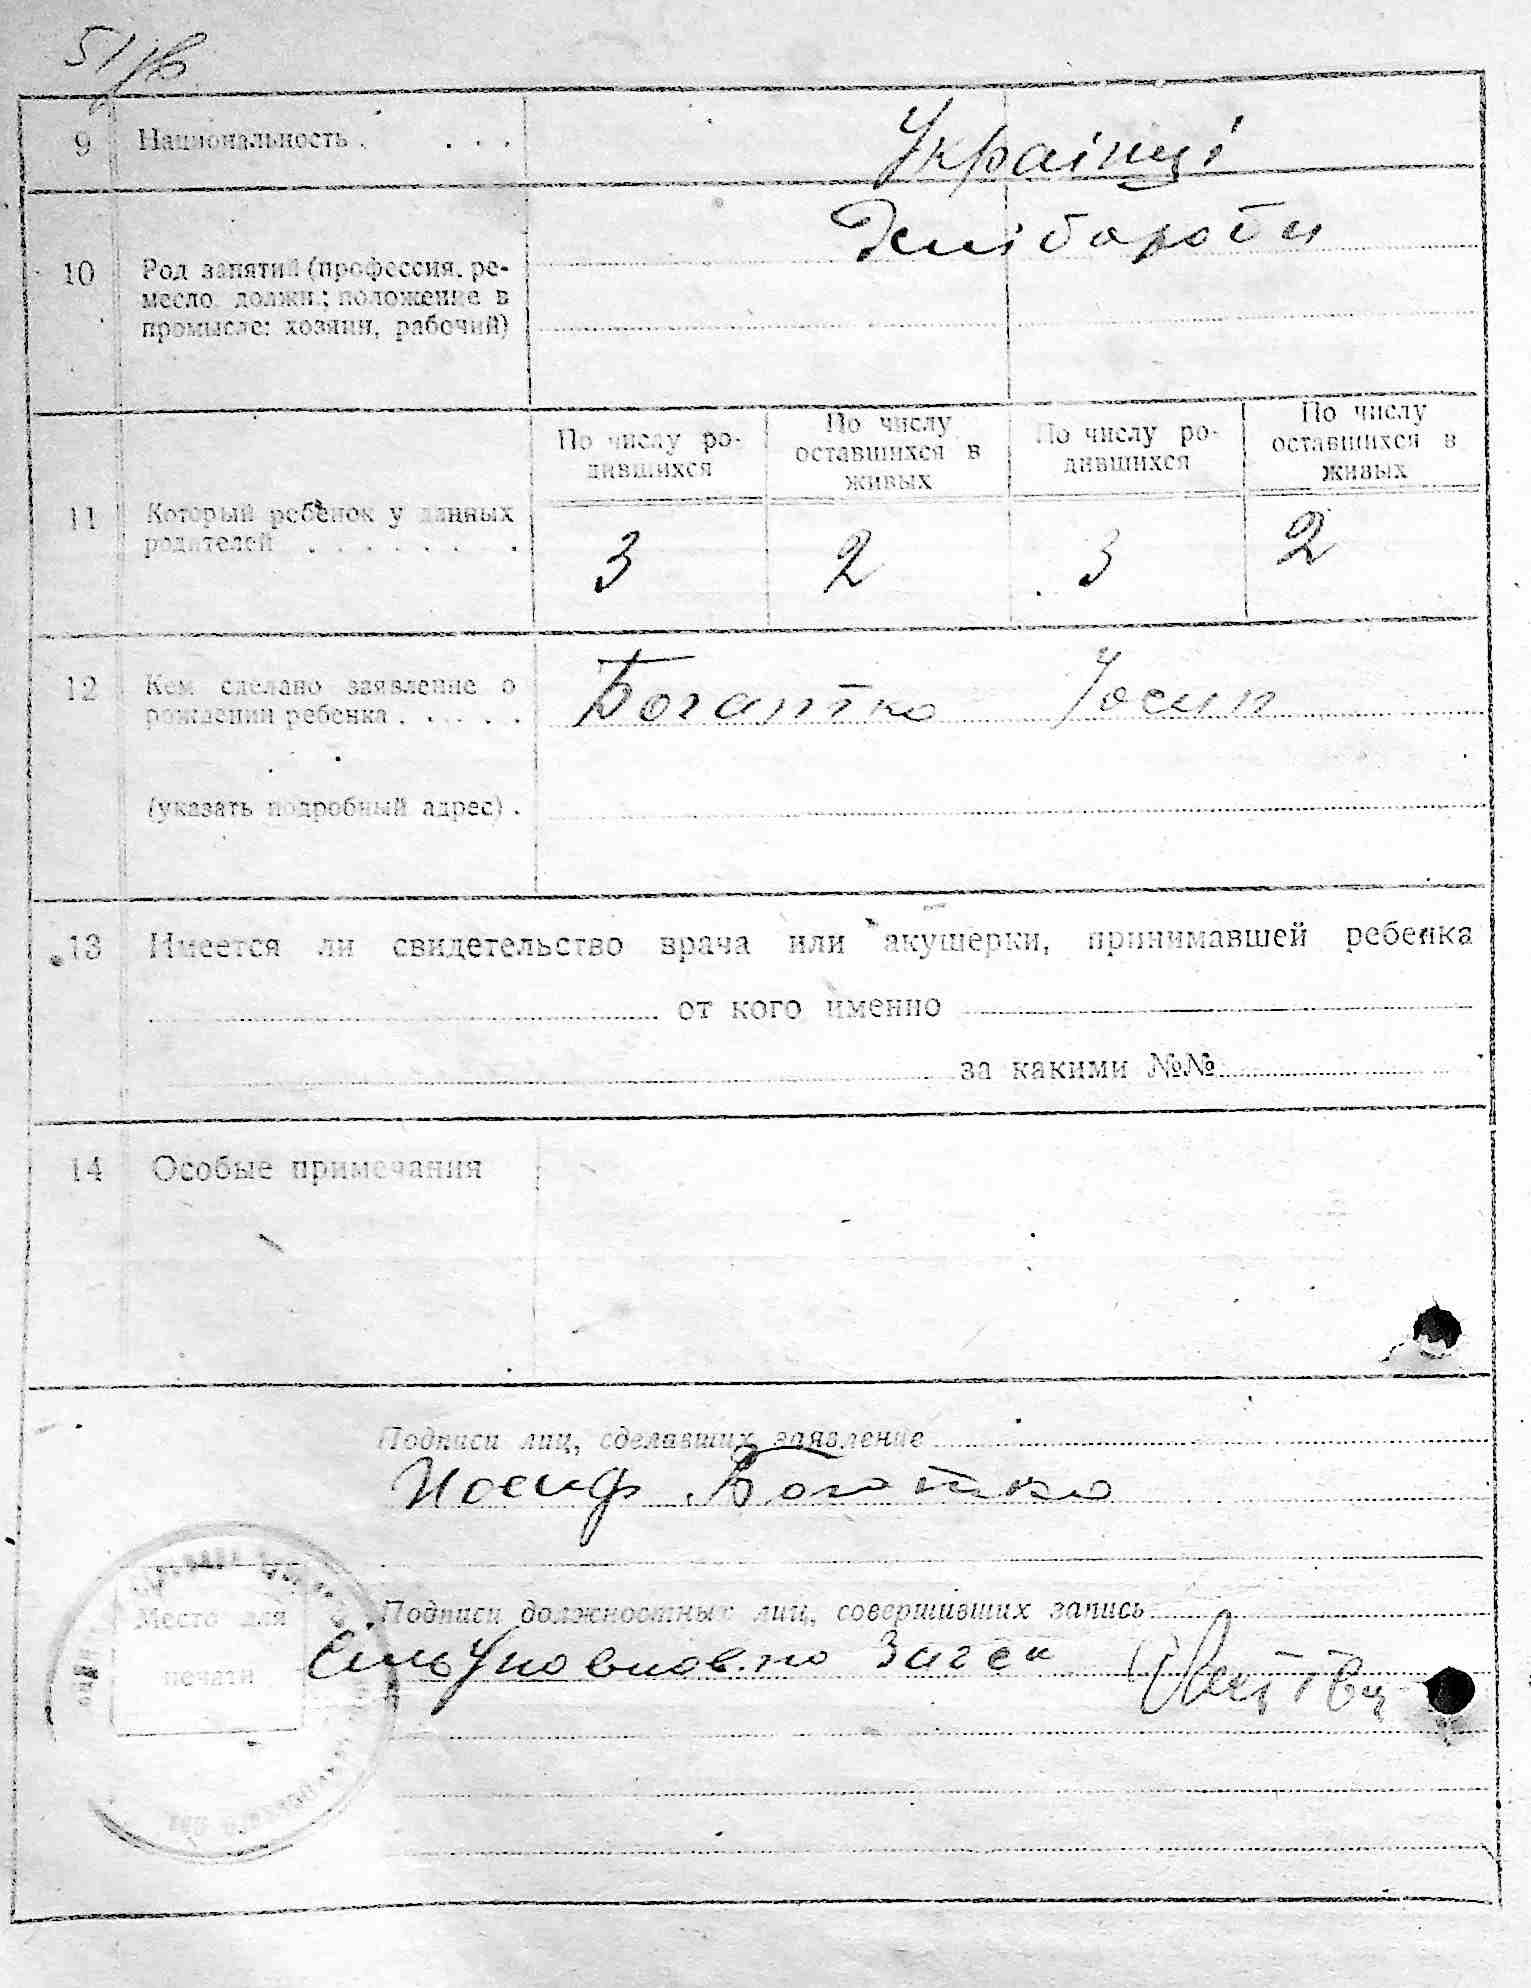 51
9 Национальность . . . . Українці
10 Род занятий (профессия, ре-
месло, должн.; положение в
промысле: хозяин, рабочий)
По числу ро-
дившихся
По числу
оставшихся в
живых
По числу ро-
дившихся
По числу
оставшихся в
живых
11 Который ребенок у данных
родителей . . . . . . . .
3 2 3 2
12 Кем сделано заявление о
рождении ребенка . . . . .
Богатко Йосип
(указать подробный адрес) .
13 Имеется ли свидетельство врача или акушерки, принимавшей ребенка
от кого именно
за какими №№
14 Особые примечания
Подписи лиц, сделавших заявление
Иосиф Боготко
Место для
печати
Подписи должностных лиц, совершивших запись